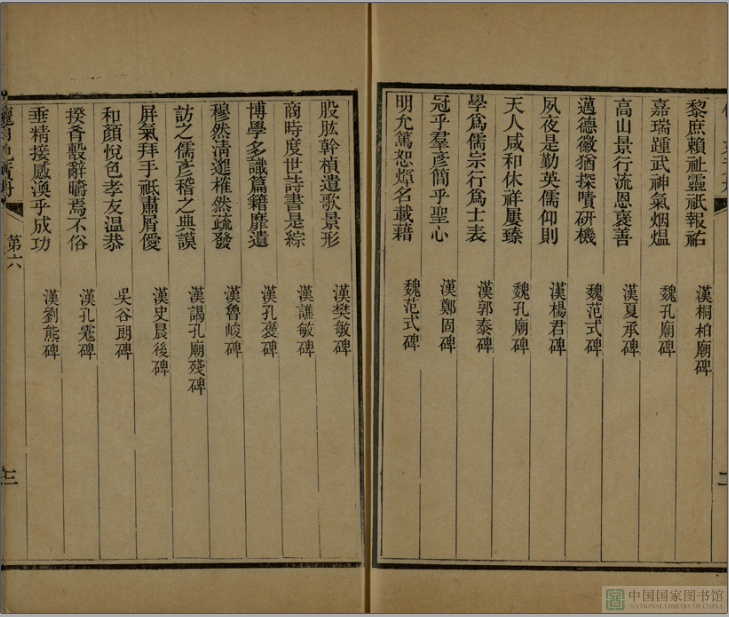 黎庶賴祉靈祇報祐　漢桐柏廟碑
嘉瑞踵武神氣烟熅　魏孔廟碑
高山景行流恩裦善　漢夏承碑
邁德徽猶探嘖研機　魏范式碑
夙夜是勤英儒仰則　漢楊君碑
天人咸和休祥屢臻　魏孔廟碑
學爲儒宗行爲士表　漢郭泰碑
冠乎羣彥簡乎聖心　漢鄭固碑
明允篤恕煇名載藉　魏范式碑
二
股肱幹楨遺歌景形　漢樊敏碑
商時度世詩書是綜　漢譙敏碑
博學多識篇籍靡遺　漢孔褒碑
穆然清邈榷然疏發　漢魯峻碑
訪之儒彥稽之典謨　漢謁孔廟殘碑
屏氣拜手祗肅屑僾　漢史晨後碑
和顏悅色孝友温恭　吳谷朗碑
揆斉毄辭驕焉不俗　漢孔宠碑
垂精接感渙乎成功　漢劉熊碑
第六
三
中国国家图书馆
NATIONAL LIBRARY OF CHINA